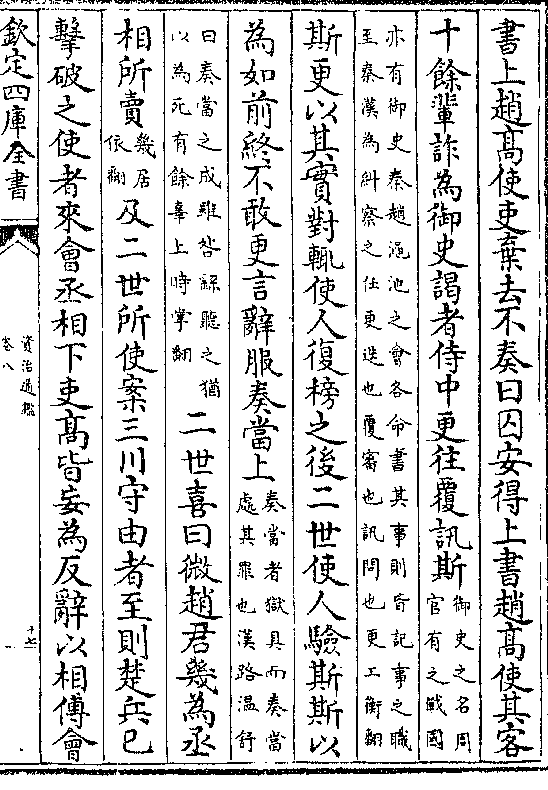 書上趙髙使吏棄去不奏曰囚安得上書趙髙使其客
十餘輩詐為御史謁者侍中更往覆訊斯
御史之名周
官有之戰國
亦有御史秦趙澠池之會各命書其事則皆記事之職
至秦漢為糾察之任更迭也覆審也訊問也更工衡翻
斯更以其實對輒使人復榜之後二世使人驗斯斯以
為如前終不敢更言辭服奏當上
奏當者獄具而奏當
處其罪也漢路温舒
曰奏當之成雖咎繇聽之猶
以為死有餘辜上時掌翻
二世喜曰微趙君幾為丞
相所賣
幾居
依翻
及二世所使案三川守由者至則楚兵已
擊破之使者來會丞相下吏髙皆妄為反辭以相傅會
欽定四庫全書
資治通鑑
卷八
十七